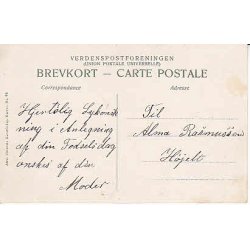 VERDENSPOSTFORENINGEN
(UNION POSTALE UNIVERSELLE)
BREVKORT — CARTE POSTALE
Correspondance
Adresse
Hjertelig Lykønsk
ning i Anledning
af din Fødselsdag
ønskes af din
Moder
Til
Alma Rasmussen
Højelt